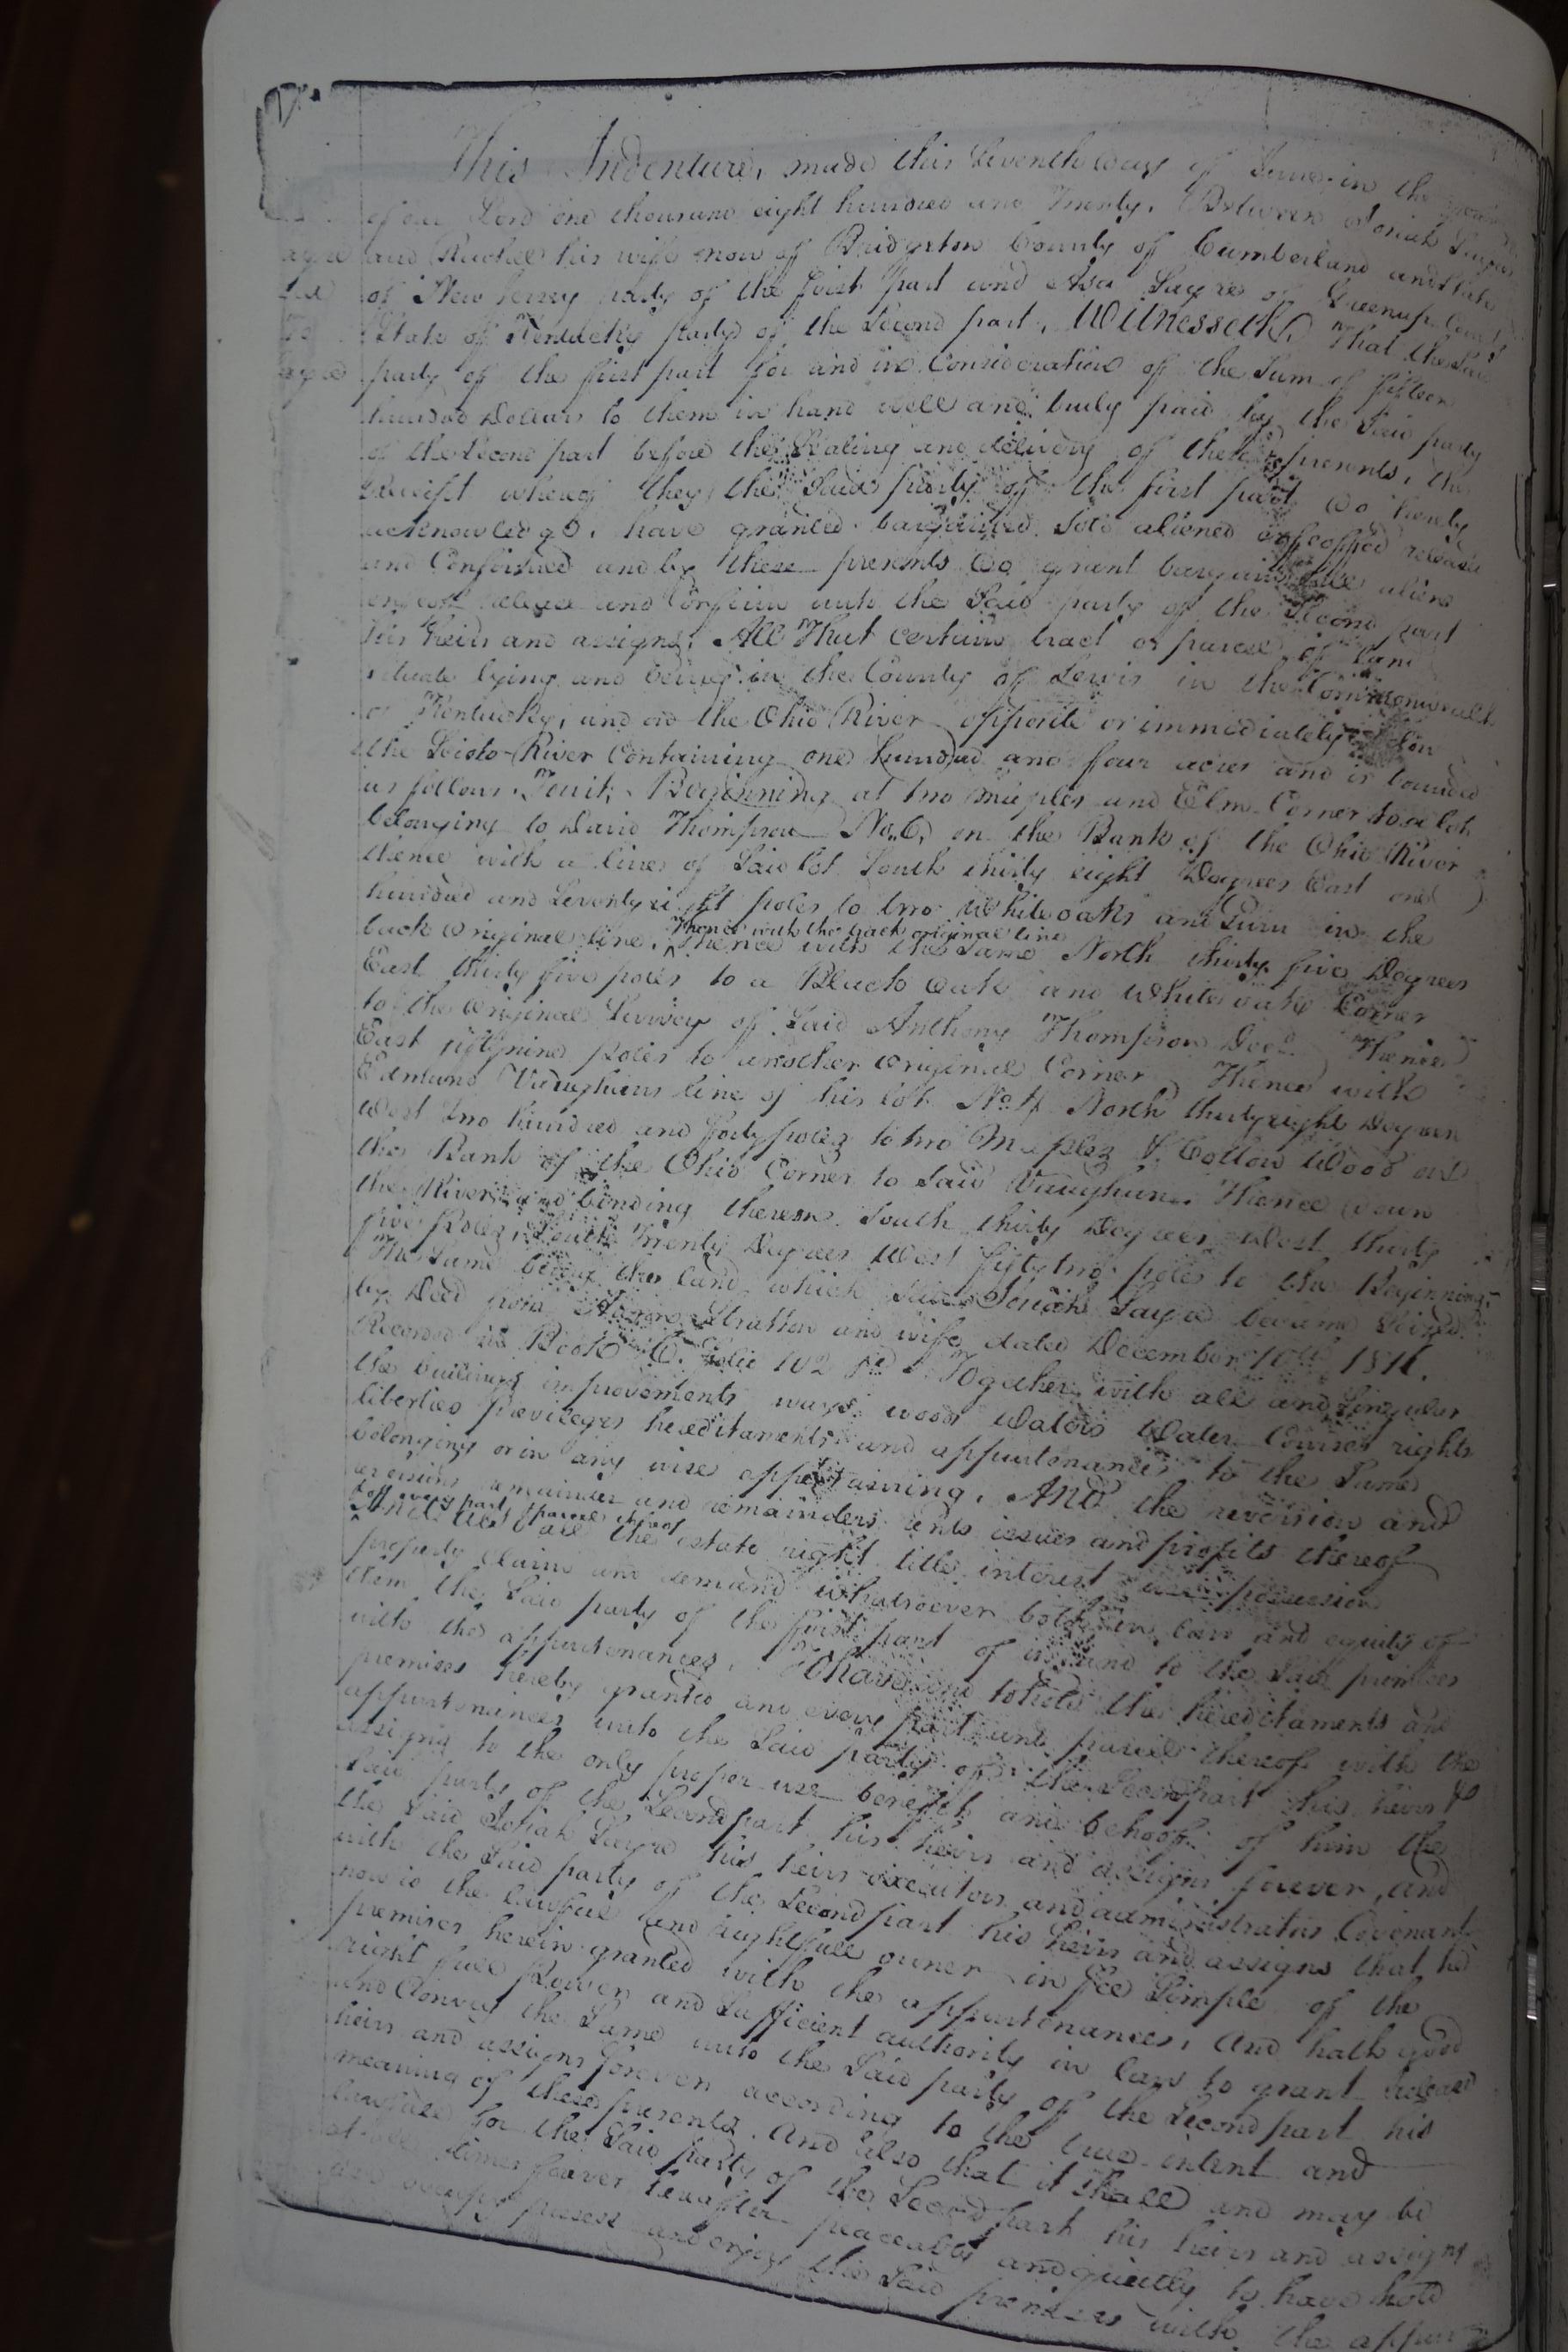 This Indenture, made this Seventh day of June in the year
of our Lord one thousand eight hundred and Twenty. Between Josiah Sayre
and Rachel his wife now of Bridgeton County of Cumberland and State
of New Jersey party of the first part and Asa Sayre of Greenup County
State of Kentucky party of the Second part, Witnesseth, That the Said
party of the first part for and in Consideration of the Sum of fifteen
hundred Dollars to them in hand well and truly paid by the Said party
of the Second part before the Sealing and delivery of these presents, the
Receipt whereof they the Said party of the first part do hereby
acknowledge, have granted bargained Sold aliened enfeoffed released
and Confirmed and by these presents do grant bargain Sell aliene
enfeoff release and Confirm unto the Said party of the Second part
his heirs and assigns, All That certain tract or parcel of land
situate lying and being in the County of Lewis in the Commonwealth
of Kentucky, and on the Ohio River opposite or immediately below
the Scioto River Containing one hundred and four acres and is bounded
as follows. Towit, Beginning at two maples and Elm Corner to a lot
belonging to David Thompson No. 6, on the Bank of the Ohio River
thence with a line of Said lot South thirty eight Degrees East one
hundred and Seventy eight poles to two White oaks and Gum in the
back original line, Thence with the back original line
Thence with the Same North thirty five Degrees
East thirty five poles to a Black oak and White oak Corner
to the original Survey of Said Anthony Thompson Decd. Thence
East fifty nine poles to another original Corner, Thence with
Edmund Vaughans line of his lot No. 4 North thirty eight Degrees
West two hundred and forty poles to two Maples & Cotton Wood on
the Bank of the Ohio Corner to Said Vaughan. Thence down
the River and binding thereon South thirty Degrees West thirty
five Poles, South Twenty Degrees West fifty two poles to the Beginning.
The Same being the land which Said Josiah Sayre became Seized
by Deed from Stratton and wife dated December 10th 181
Recorded in Book C. Folio 102 Together with all and Singular
the buildings improvements ways woods Waters Water Courses rights
liberties privileges hereditaments and appurtenances to the Same
belonging or in any wise appertaining, And the reversion and
reversions remainder and remainders rents issues and profits thereof
& of every part & parcel thereof
And also all the estate right title interest use possession
property claim and demand whatsoever both in law and equity of
them the Said party of the first part of in and to the Said premises
with the appurtenances, To have and to hold the hereditaments and
premises hereby granted and every part and parcel thereof with the
appurtenances unto the Said party of the Second part his heirs &
assigns to the only proper use benefit and behoof of him the
Said party of the Second part his heirs and assigns forever, and
the Said Josiah Sayre his heirs executors and administrators Covenant
with the Said party of the Second part his heirs and assigns that he
now is the lawful and rightfull owner in fee Simple of the
premises herein granted with the appurtenances, and hath good
right full Power and Sufficient authority in law to grant release
and Convey the Same unto the Said party of the Second part his
heirs and assigns forever according to the true intent and
meaning of these presents. And also that it shall and may be
lawful for the Said party of the Second part his heirs and assigns
at all times forever hereafter peaceably and quietly to have hold
use occupy possess and enjoy the Said premises with the appur